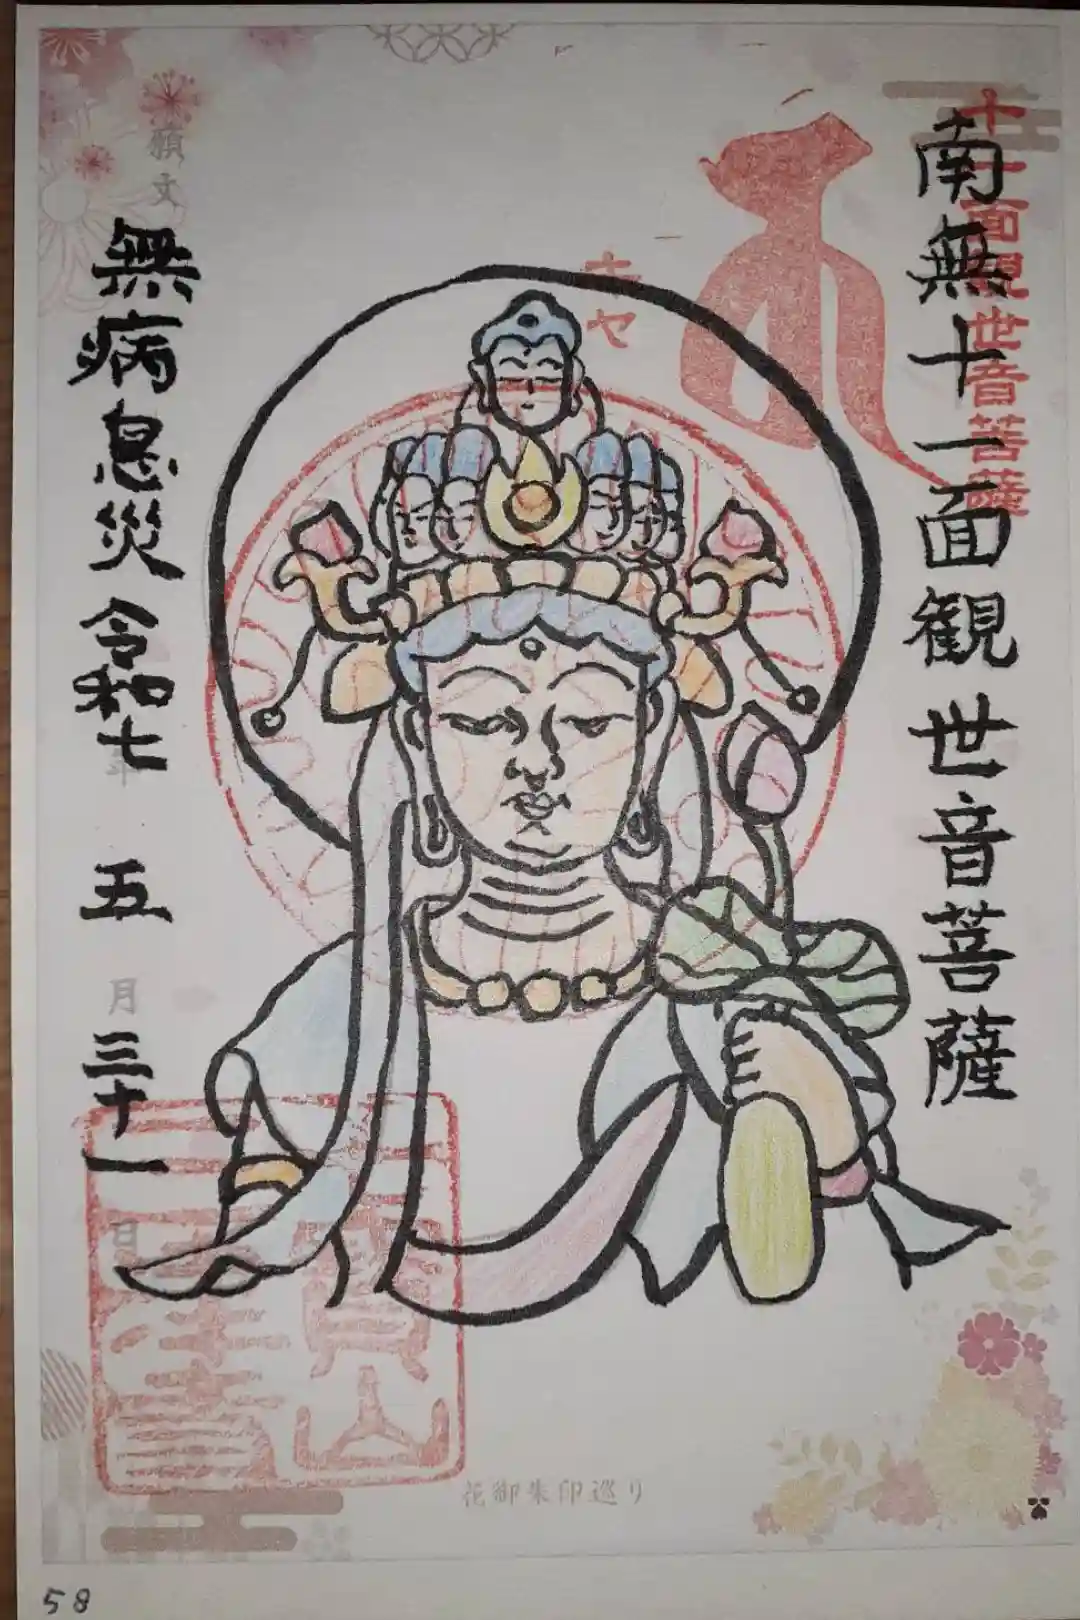 十一面観世音菩薩
南無十一面観世音菩薩
キャ
願文
無病息災
令和七年五月三十一日
花御朱印巡り
58